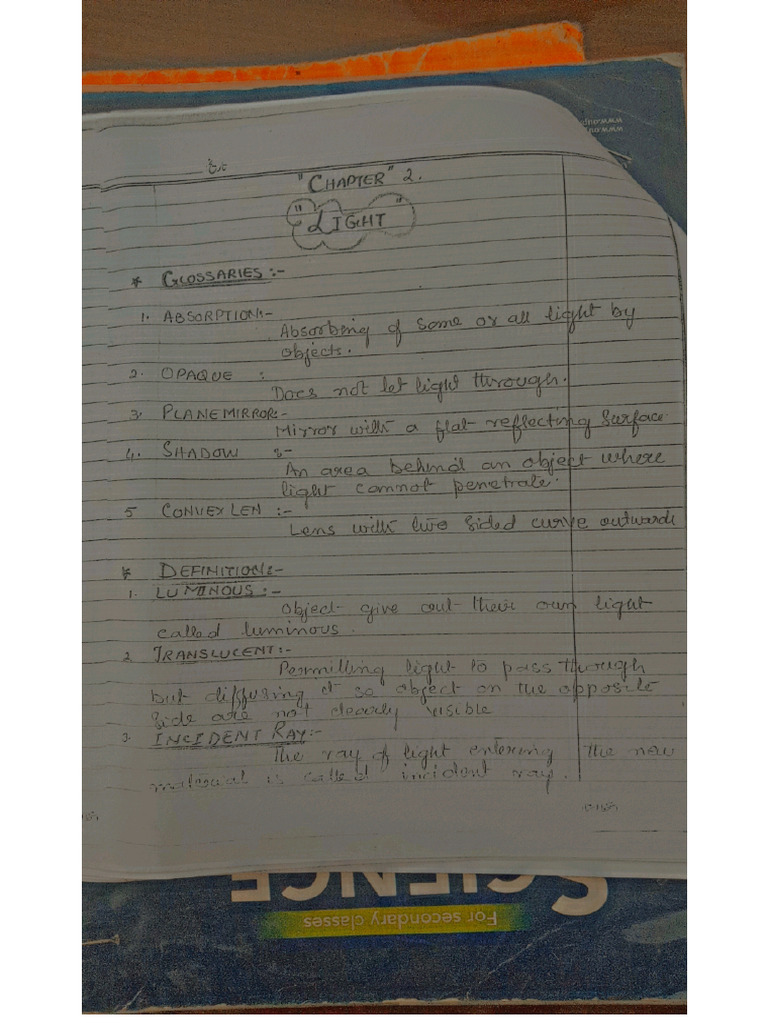 "CHAPTER" 2.
"LIGHT"
* GLOSSARIES :-
1. ABSORPTION:-
Absorbing of some or all light by
objects.
2. OPAQUE :
Does not let light through.
3. PLANE MIRROR:-
Mirror with a flat reflecting surface
4. SHADOW :-
An area behind an object where
light cannot penetrate.
5 CONVEX LEN :-
Lens with two sided curve outwards
* DEFINITION:-
1. LUMINOUS :-
Object give out their own light
called luminous.
2 TRANSLUCENT:-
Permitting light to pass through
but diffusing it so object on the opposite
side are not clearly visible
3. INCIDENT RAY:-
The ray of light entering the new
material is called incident ray.
SCIENCE
For secondary classes